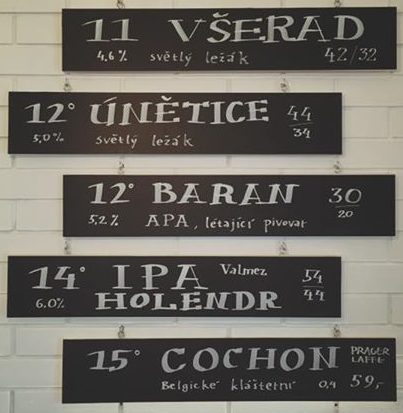 11 VŠERAD
4,6% světlý ležák 42/32
12° ÚNĚTICE 44
5,0% světlý ležák 34
12° BARAN 30
5,2% APA, létající pivovar 20
14° IPA Valmez 54
6.0% HOLENDR 44
15° COCHON PRAGER LAFFE
Belgické klášterní 0,4 59,-